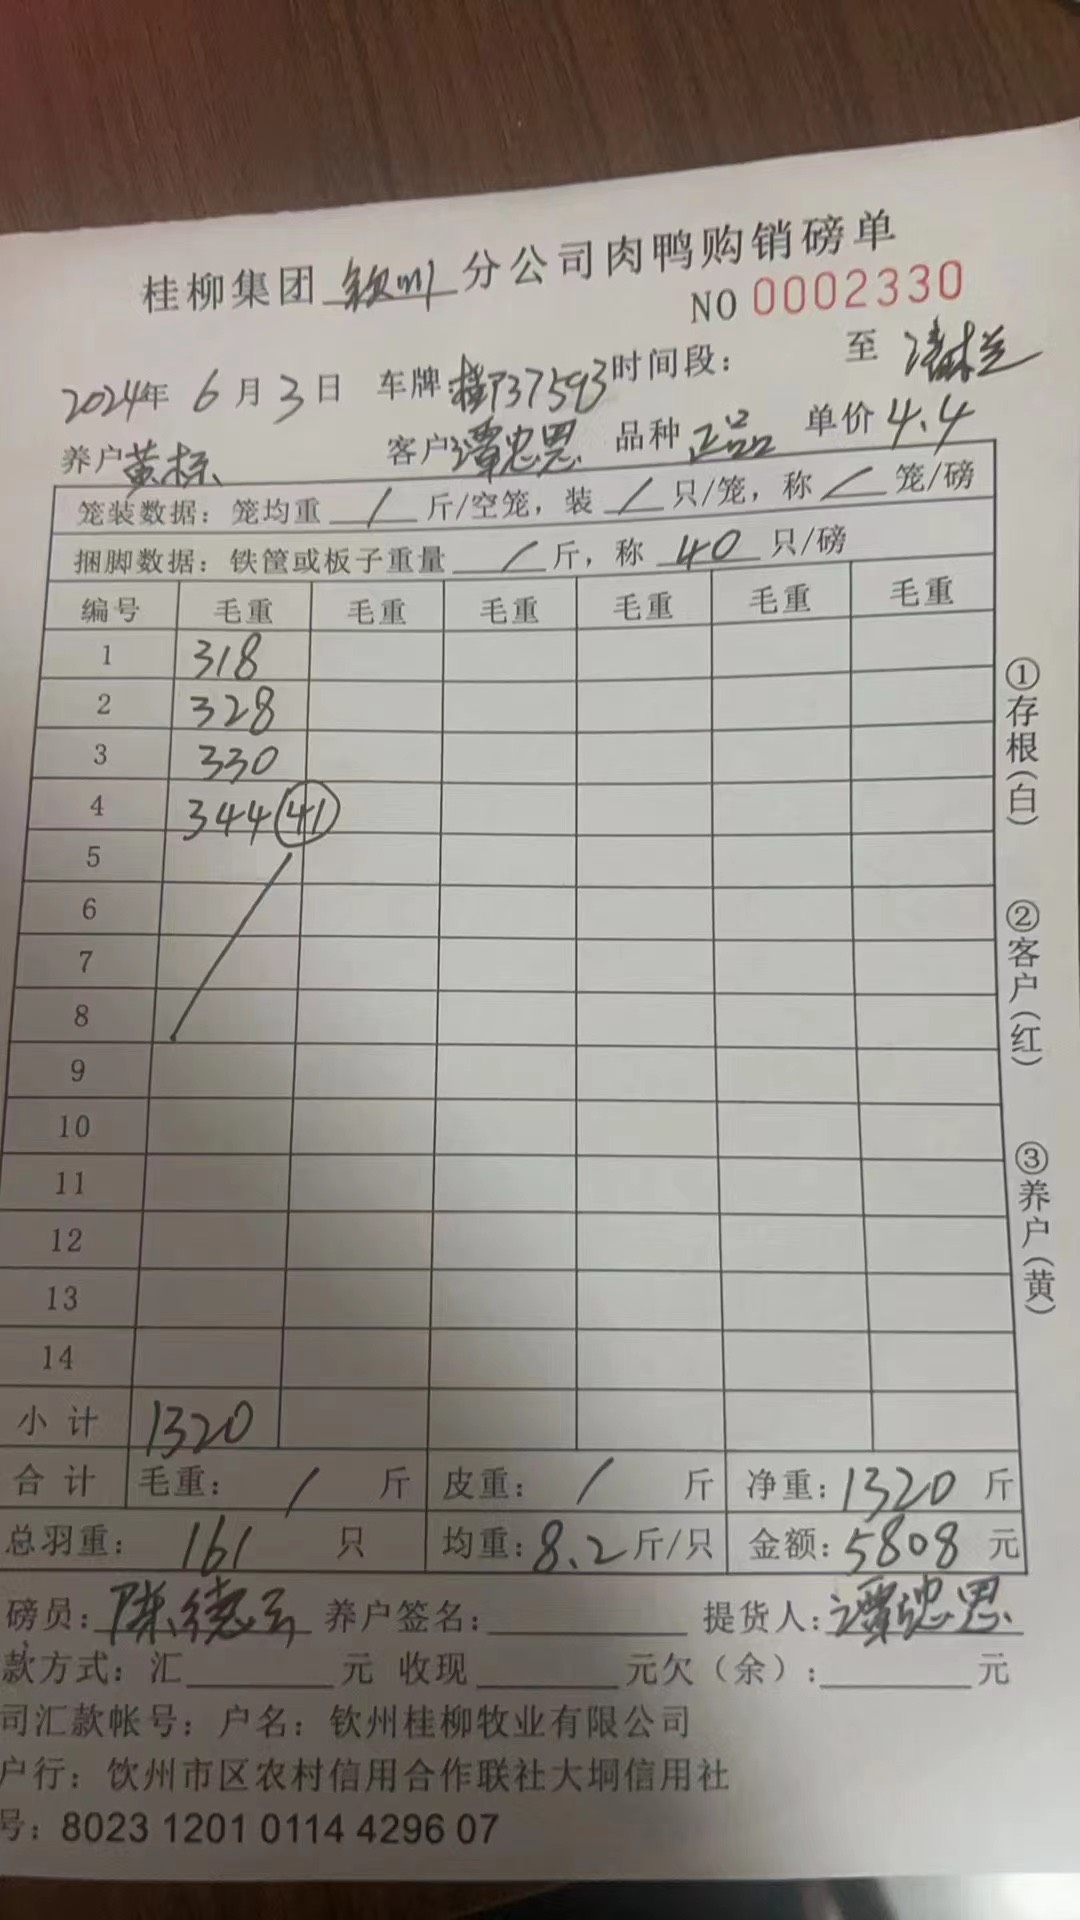 桂柳集团 钦州 分公司肉鸭购销磅单
NO 0002330
2024年 6月3日 车牌:桂P37593 时间段: 至
养户黄栋 客户谭忠恩 品种正品 单价4.4
笼装数据：笼均重 / 斤/空笼，装 / 只/笼，称 / 笼/磅
捆脚数据：铁筐或板子重量 / 斤，称 40 只/磅
编号 毛重 毛重 毛重 毛重 毛重 毛重
1 318
2 328
3 330
4 344 41
5
6
7
8
9
10
11
12
13
14
小计 1320
合计 毛重： / 斤 皮重： / 斤 净重：1320斤
总羽重： 161 只 均重：8.2斤/只 金额：5808元
磅员：陈德云 养户签名： 提货人：谭忠恩
款方式：汇 元 收现 元欠（余）： 元
司汇款帐号：户名：钦州桂柳牧业有限公司
户行：饮州市区农村信用合作联社大垌信用社
号：8023 1201 0114 4296 07
①存根(白)
②客户(红)
③养户(黄)